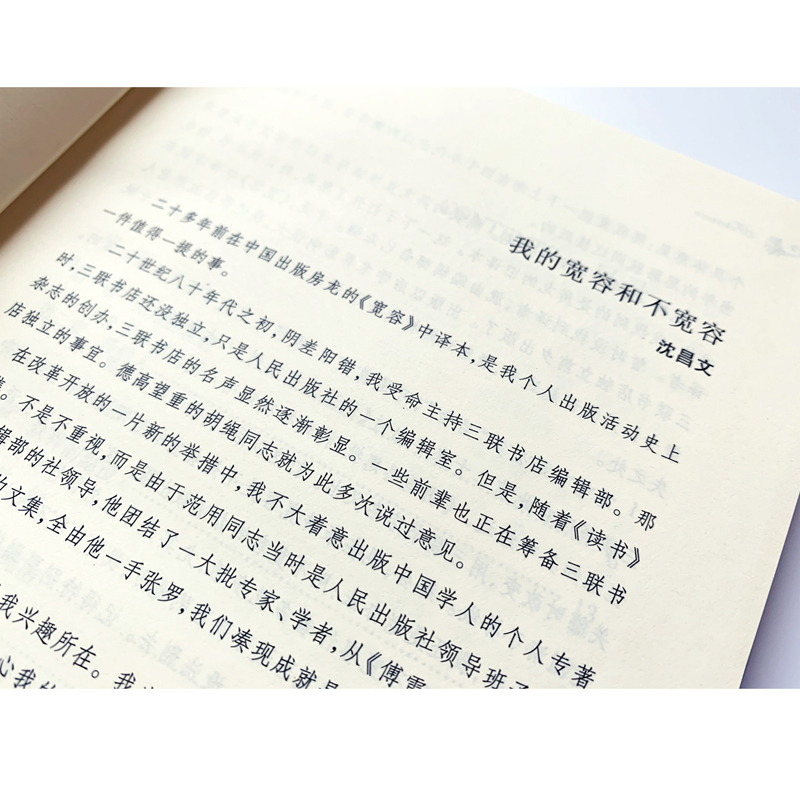 我的宽容和不宽容
沈昌文
二十多年前在中国出版房龙的《宽容》中译本，是我个人出版活动史上
一件值得一提的事。
二十世纪八十年代之初，阴差阳错，我受命主持三联书店编辑部。那
时，三联书店还没独立，只是人民出版社的一个编辑室。但是，随着《读书》
杂志的创办，三联书店的名声显然逐渐彰显。一些前辈也正在筹备三联书
店独立的事宜。德高望重的胡绳同志就为此多次说过意见。
在改革开放的一片新的举措中，我不大着意出版中国学人的个人专著
。不是不重视，而是由于范用同志当时是人民出版社领导班子
辑部的社领导，他团结了一大批专家、学者，从《傅雷
文集，全由他一手张罗，我们凑现成就是
我兴趣所在。我
心我的